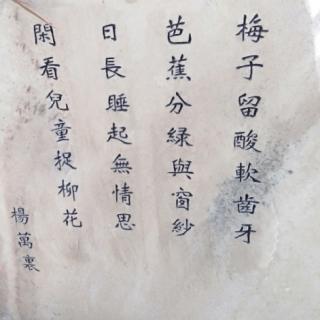 梅子留酸軟齒牙
芭蕉分綠與窗紗
日長睡起無情思
閑看兒童捉柳花
楊萬裏